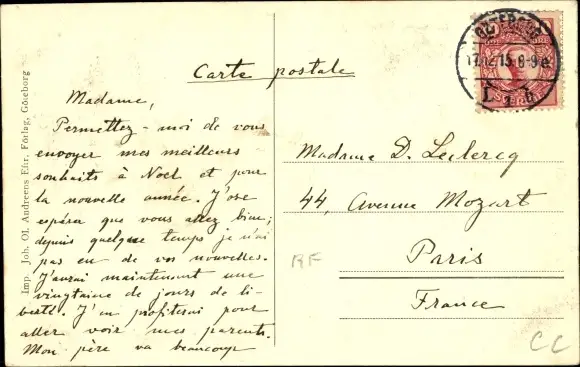 Carte postale
Madame,
Permettez-moi de vous
envoyer mes meilleurs
souhaits à Noël et pour
la nouvelle année. J'ose
espérer que vous allez bien;
depuis quelque temps je n'ai
pas eu de vos nouvelles.
J'aurai maintenant une
vingtaine de jours de li-
berté. J'en profiterai pour
aller voir mes parents.
Mon père va beaucoup
Madame D. Leclercq
44, Avenue Mozart
Paris
France
RF
CC
Imp. Joh. Ol. Andreens Eftr. Förlag, Göteborg
GÖTEBORG
17.12.15. 8-9 e
SVERIGE